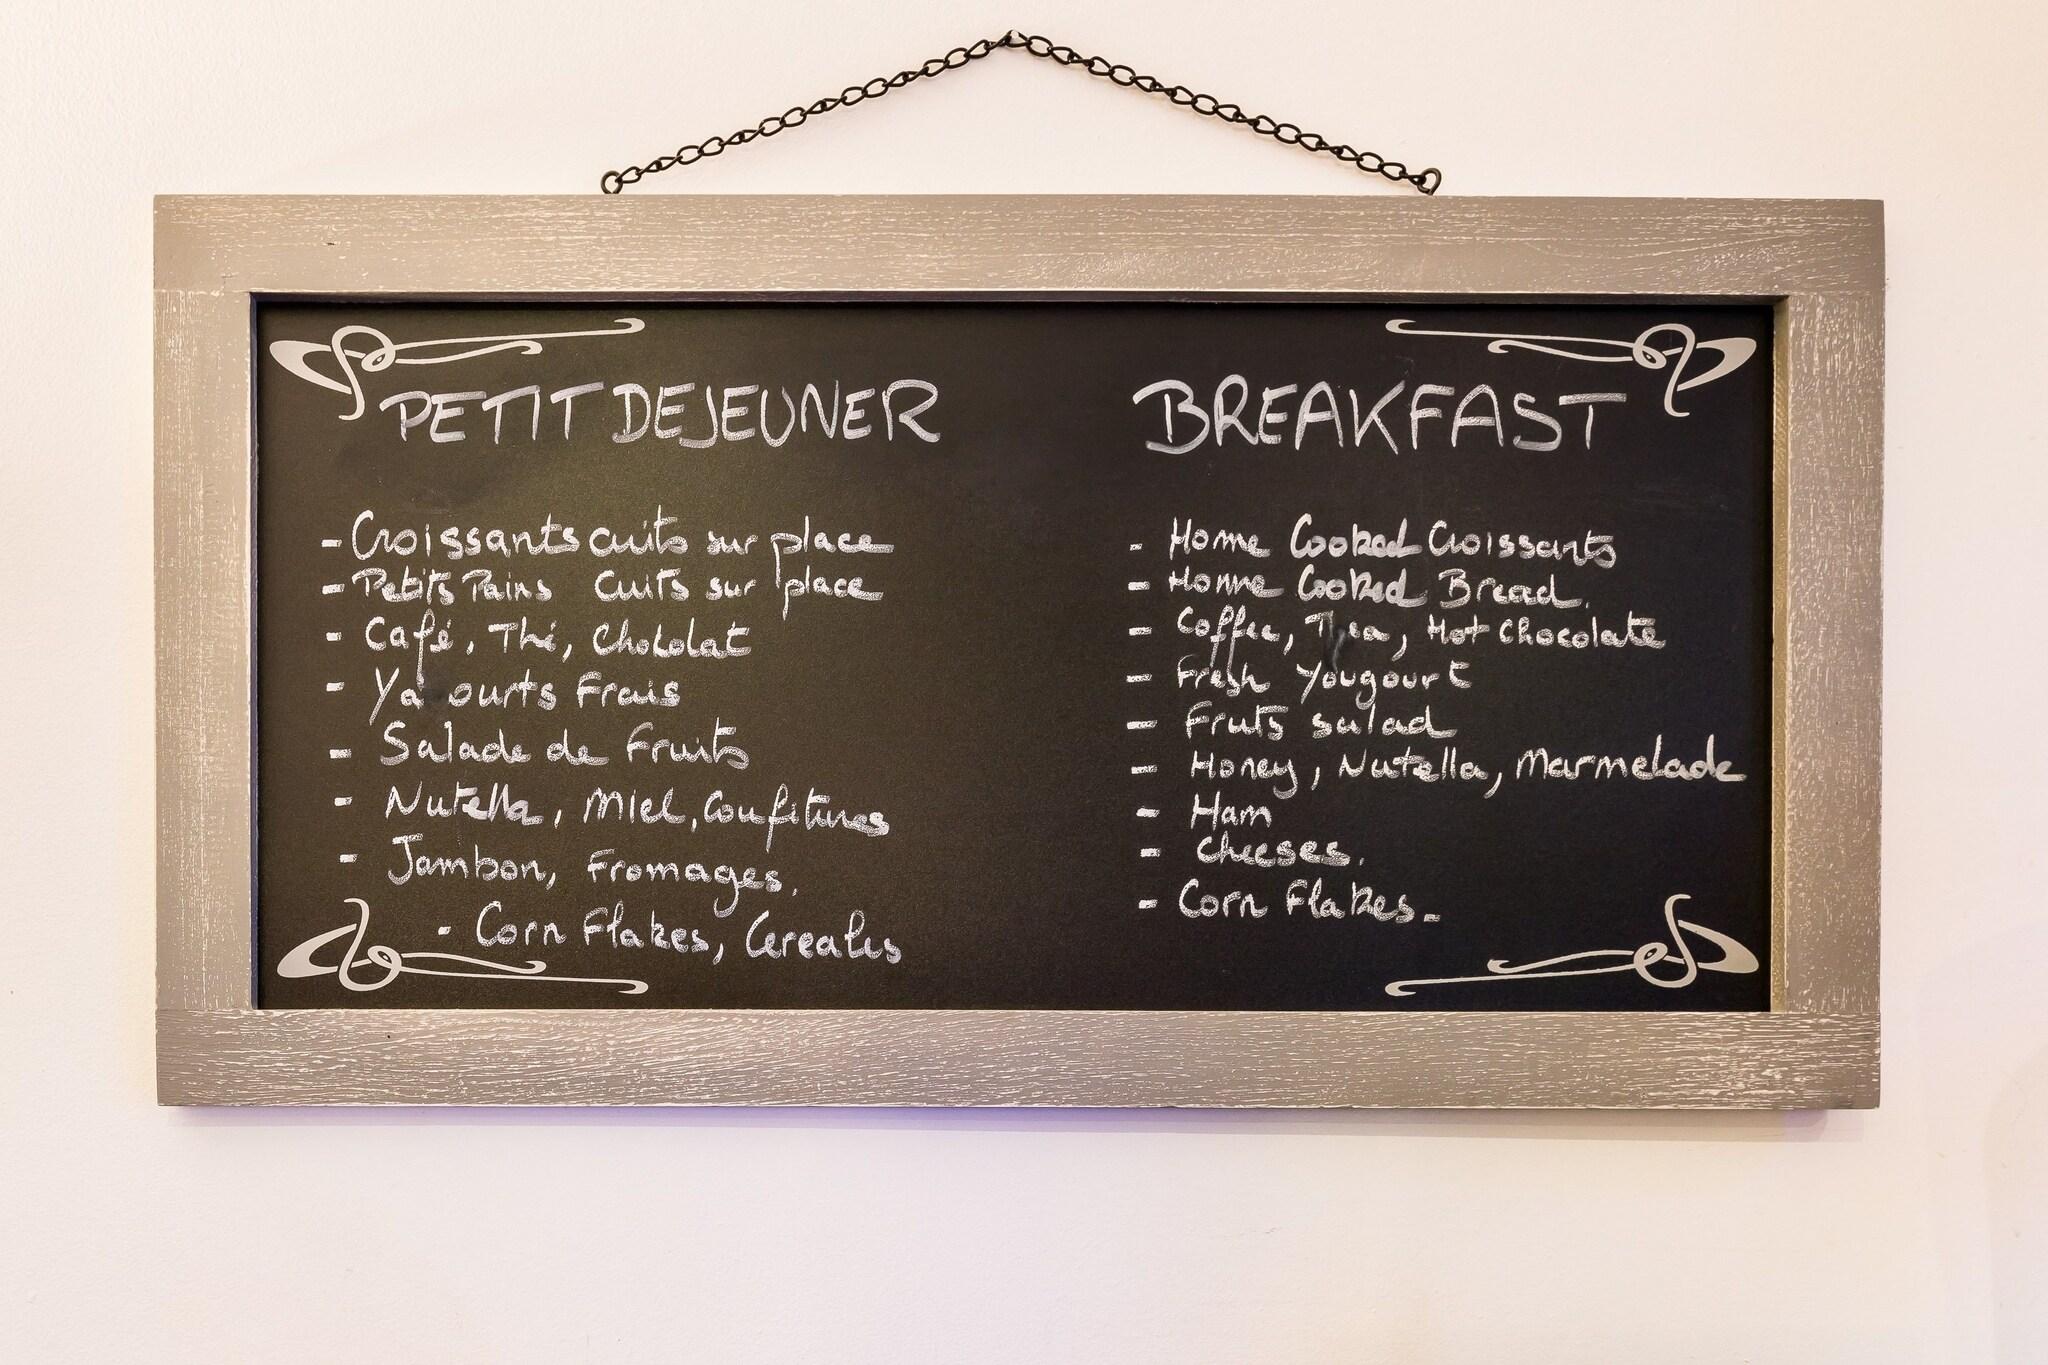 PETIT DEJEUNER
- Croissants cuits sur place
- Petits Pains cuits sur place
- Café, Thé, Chololat
- Ya ourts Frais
- Salade de Fruits
- Nutella, Miel, Confitures
- Jambon, Fromages.
- Corn Flakes, Cereales
BREAKFAST
- Home Cooked Croissants
- Home Cooked Bread.
- Coffee, Thea, Hot chocolate
- Fresh Yougourt
- Fruts salad
- Honey, Nutella, Marmelade
- Ham
- Cheeses.
- Corn Flakes.-